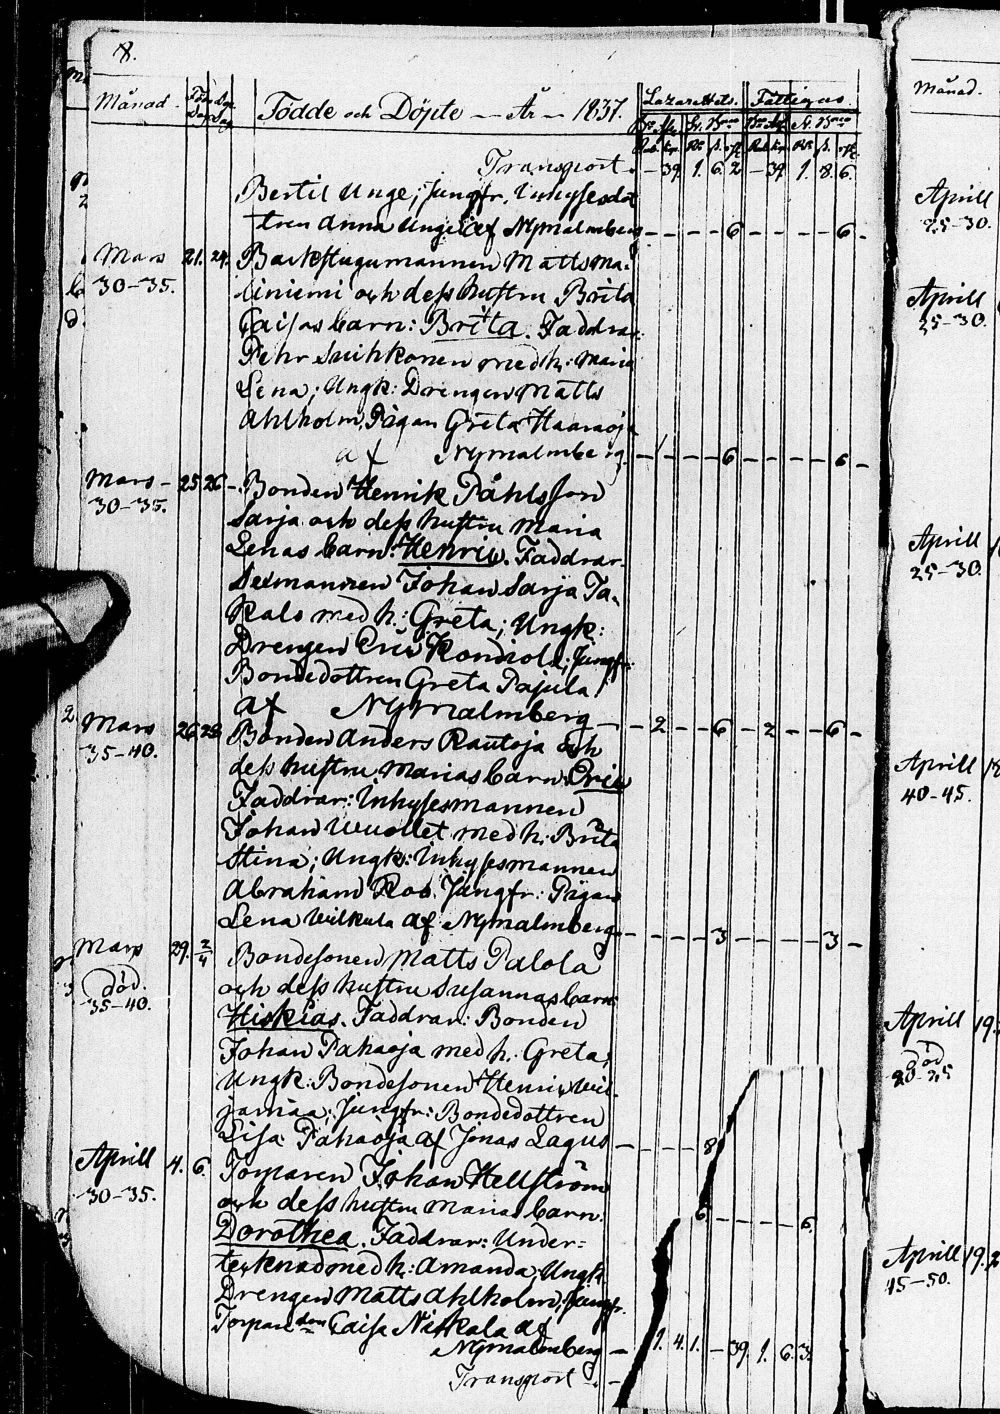 8.
Månad. Föd. Dag Dop Dag Födde och Döpte — År — 1837. Lazarettets. Fattigas.
Transport. — 39. 1. 6. 2 — 39. 1. 8. 6.
Bertil Unge; Jungfr. Inhysesdot
tren Anna Unge af Nymalmberg — — — — 6 — — — — 6 —
Mars 21. 24. Backstugumannen Matts Ma-
30–35. liniemi och dess hustru Brita
Caisas barn: Brita. Faddrar:
Pehr Suihkonen med h: Maria
Lena; Ungk: Drengen Matts
Ahlholm, Pigan Greta Haaraoja
af Nymalmberg. — — — — 6 — — — — 6 —
Mars 25 26 Bonden Henrik Påhlsson
30–35. Sarja och dess hustru Maria
Lenas barn: Henric. Faddrar:
Sexmannen Johan Sarja Ta-
kalo med h: Greta; Ungk:
Drengen Eric Kondiola; Jungfr:
Bondedottren Greta Pajula
af Nymalmberg — — 2 — — 6 — 2 — — 6 —
Mars 26 28 Bonden Anders Rautoja och
35–40. dess hustru Marias barn Eric
Faddrar: Inhysesmannen
Johan Wuollet med h: Brita
Stina; Ungk: Inhysesmannen
Abraham Roo. Jungfr: Pigan
Lena Wilkula af Nymalmberg — — — — 3 — — — — 3 —
Mars 29. 2/4 Bondesonen Matts Palola
död. och dess hustru Susannas barn
35–40. Hiskias. Faddrar: Bonden
Johan Pahaoja med h. Greta;
Ungk: Bondesonen Henric Wil-
jamaa; Jungfr: Bondedottren
Lisa Pahaoja af Jonas Lagus — — — — 8
Aprill 4. 6. Torparen Johan Hellström
30–35. och dess hustru Marias barn:
Dorothea. Faddrar: Under- 6 — — — — 6.
tecknad med h: Amanda; Ungk.
Drengen Matts Ahlholm, Jungfr.
Torpare dn Caisa Niskala af
Nymalmberg — 1. 4. 1. — 39. 1. 6. 3.
Transport. —
Månad.
Aprill
25–30.
Aprill
25–30.
Aprill
25–30.
Aprill
40–45.
Aprill 19.
död
20–25
Aprill 19. 2
45–50.